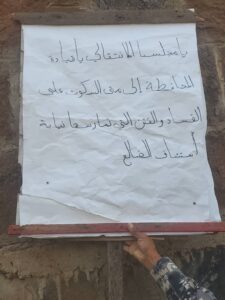 يا مجلسنا الانتقالي يا قيادة
المحافظة إلى متى السكوت على
الفساد والفتن التي تمارسها نيابة
استئناف الضالع